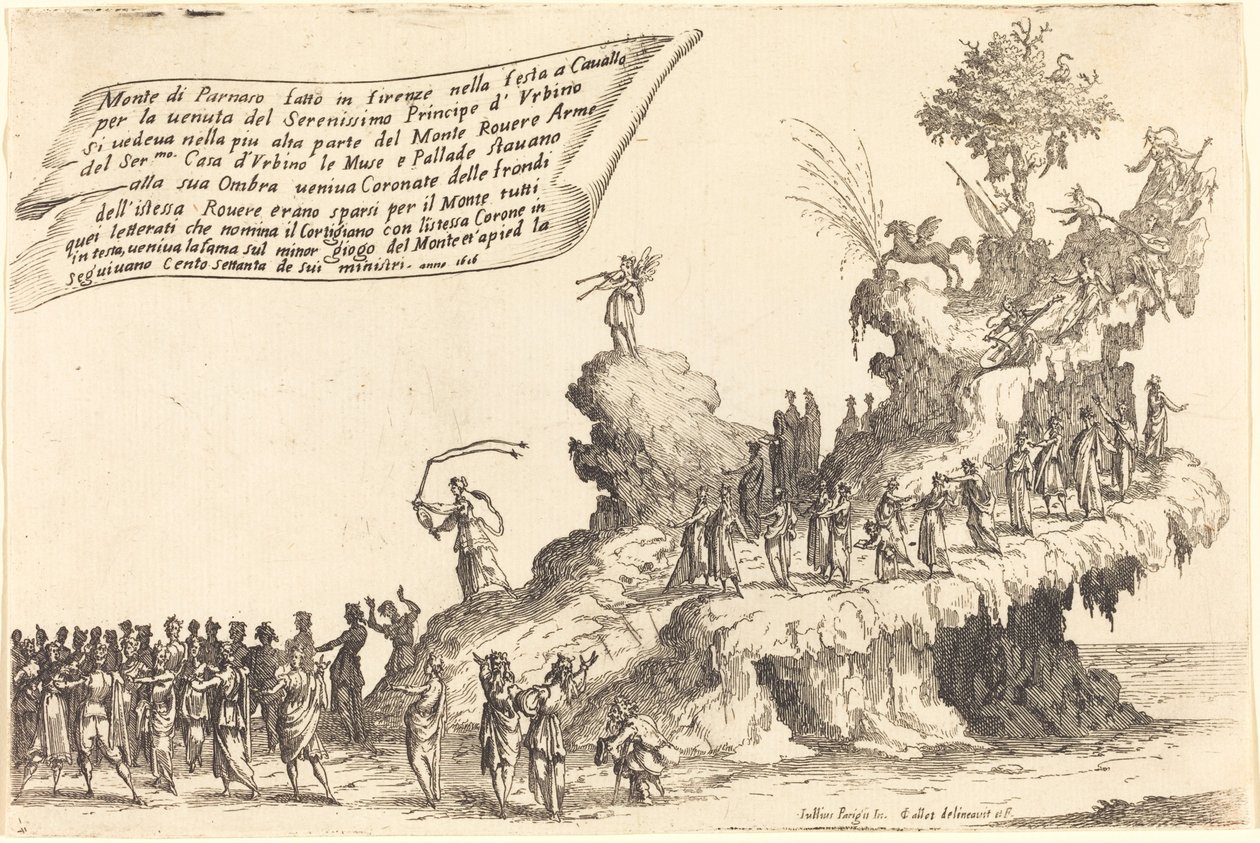 Monte di Parnaso fatto in firenze nella festa a Cauallo
per la uenuta del Serenissimo Principe d' Vrbino
Si uedeua nella piu alta parte del Monte Rouere Arme
del Ser.mo. Casa d'Vrbino le Muse e Pallade stauano
alla sua Ombra ueniua Coronate delle frondi
dell'istessa Rouere erano sparsi per il Monte tutti
quei letterati che nomina il Cortigiano con listessa Corone in
in testa, ueniua la fama sul minor giogo del Monte et a pied la
seguiuano Cento settanta de sui ministri. anno 1616
Iullius Parigii In. Callot delineauit et F.